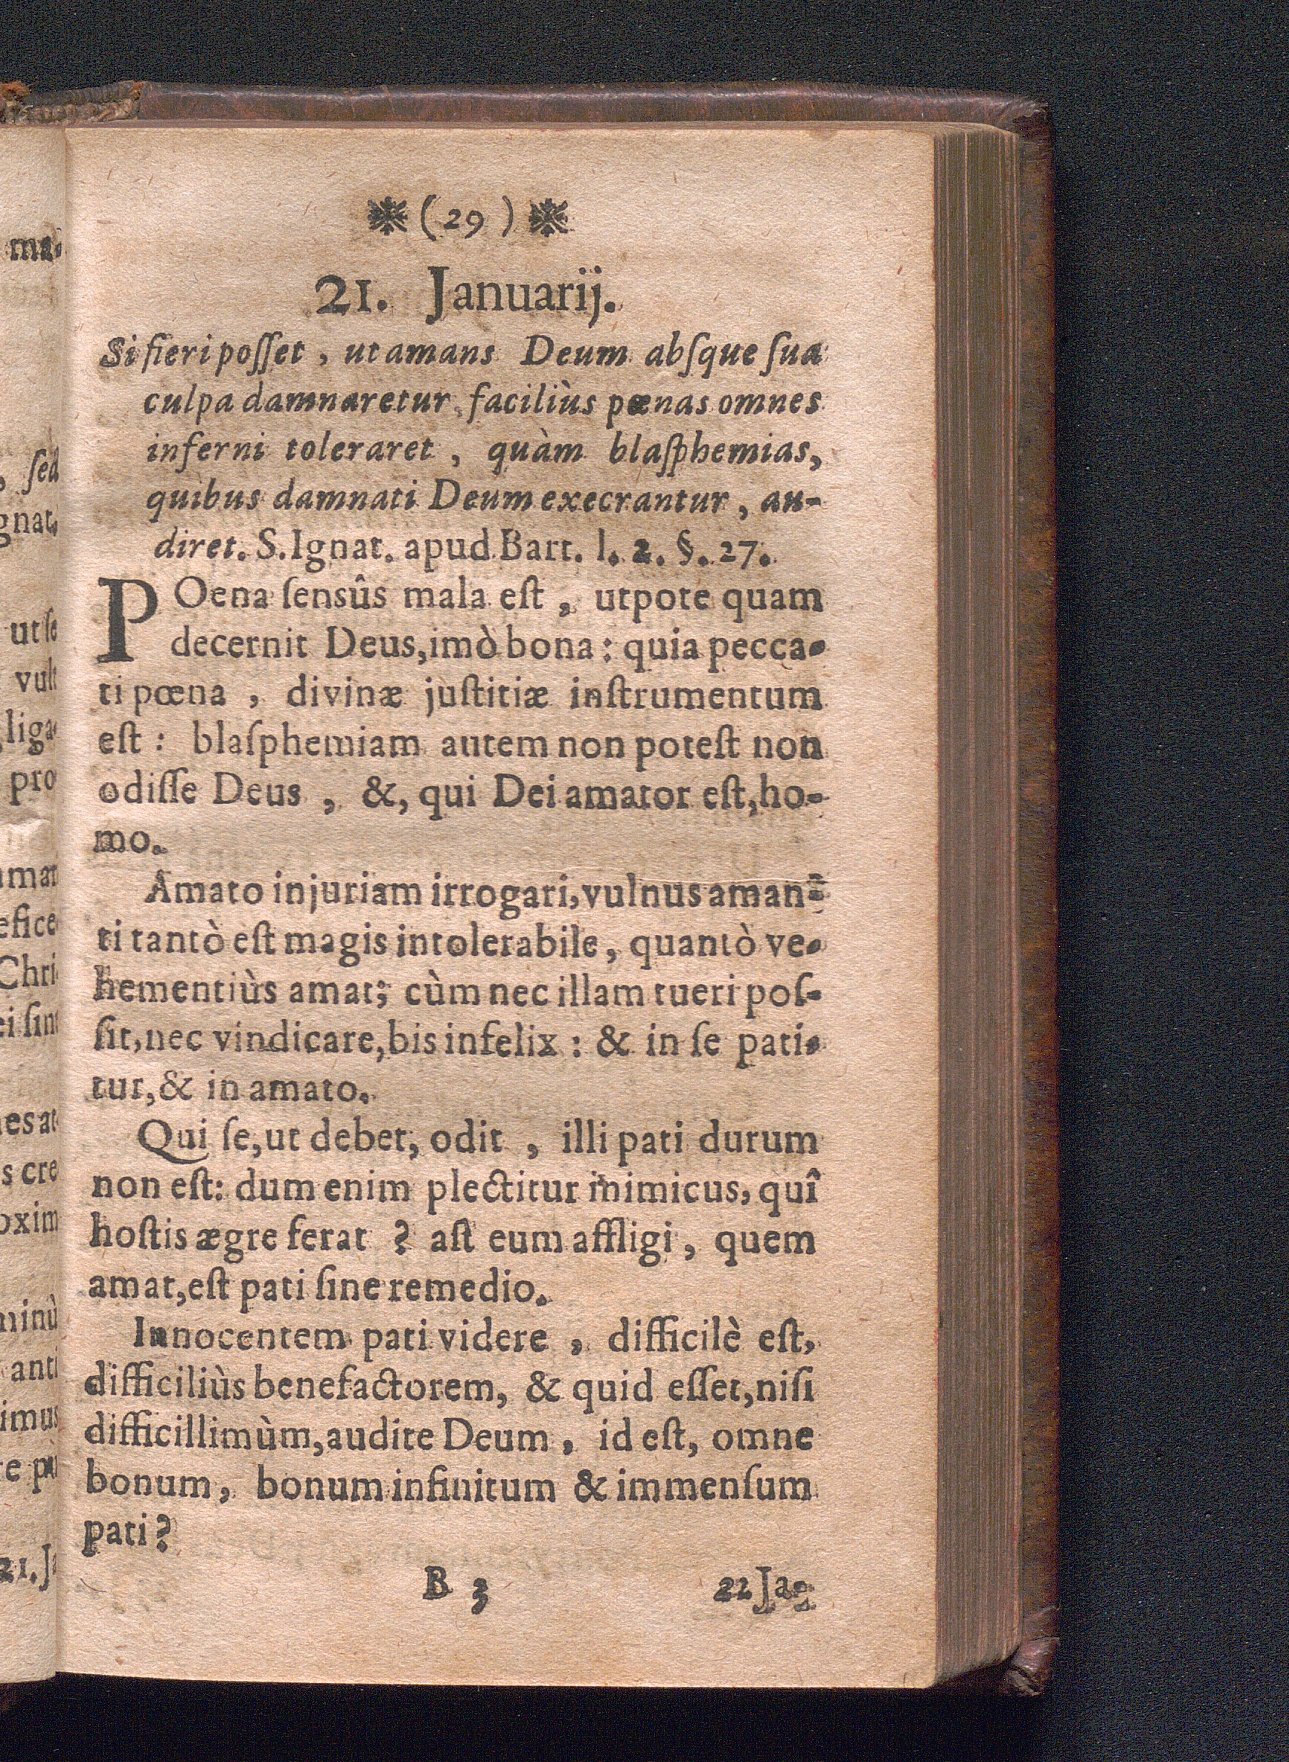 (29)
21. Januarij.
Si fieri poſſet, ut amans Deum abſque ſua
culpa damnaretur, faciliùs pœnas omnes
inferni toleraret, quàm blaſphemias,
quibus damnati Deum execrantur, au-
diret. S. Ignat. apud Bart. l. 2. §. 27.
POena ſensûs mala eſt, utpote quam
decernit Deus, imò bona: quia pecca-
ti pœna, divinæ juſtitiæ inſtrumentum
eſt: blaſphemiam autem non poteſt non
odiſſe Deus, &, qui Dei amator eſt, ho-
mo.
Amato injuriam irrogari, vulnus aman-
ti tantò eſt magis intolerabile, quantò ve-
hementiùs amat; cùm nec illam tueri poſ-
ſit, nec vindicare, bis infelix: & in ſe pati-
tur, & in amato.
Qui ſe, ut debet, odit, illi pati durum
non eſt: dum enim plectitur inimicus, quî
hoſtis ægre ferat? aſt eum affligi, quem
amat, eſt pati ſine remedio.
Innocentem pati videre, difficilè eſt,
difficiliùs benefactorem, & quid eſſet, niſi
difficillimùm, audire Deum, id eſt, omne
bonum, bonum infinitum & immenſum
pati?
B 3 22 Ja-